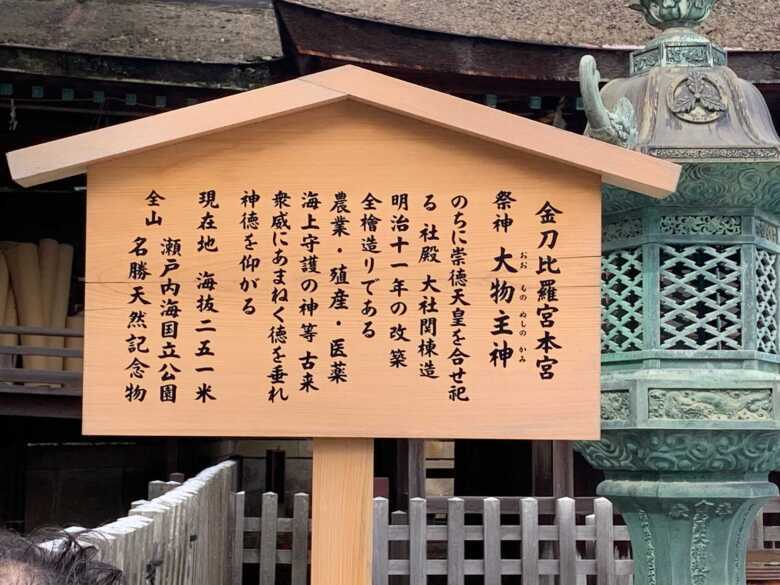 金刀比羅宮本宮
祭神 大物主神
おお もの ぬしの かみ
のちに崇徳天皇を合せ祀
る 社殿 大社関棟造
明治十一年の改築
全檜造りである
農業・殖産・医薬
海上守護の神等 古来
衆威にあまねく徳を垂れ
神徳を仰がる
現在地 海抜二五一米
全山 瀬戸内海国立公園
名勝天然記念物